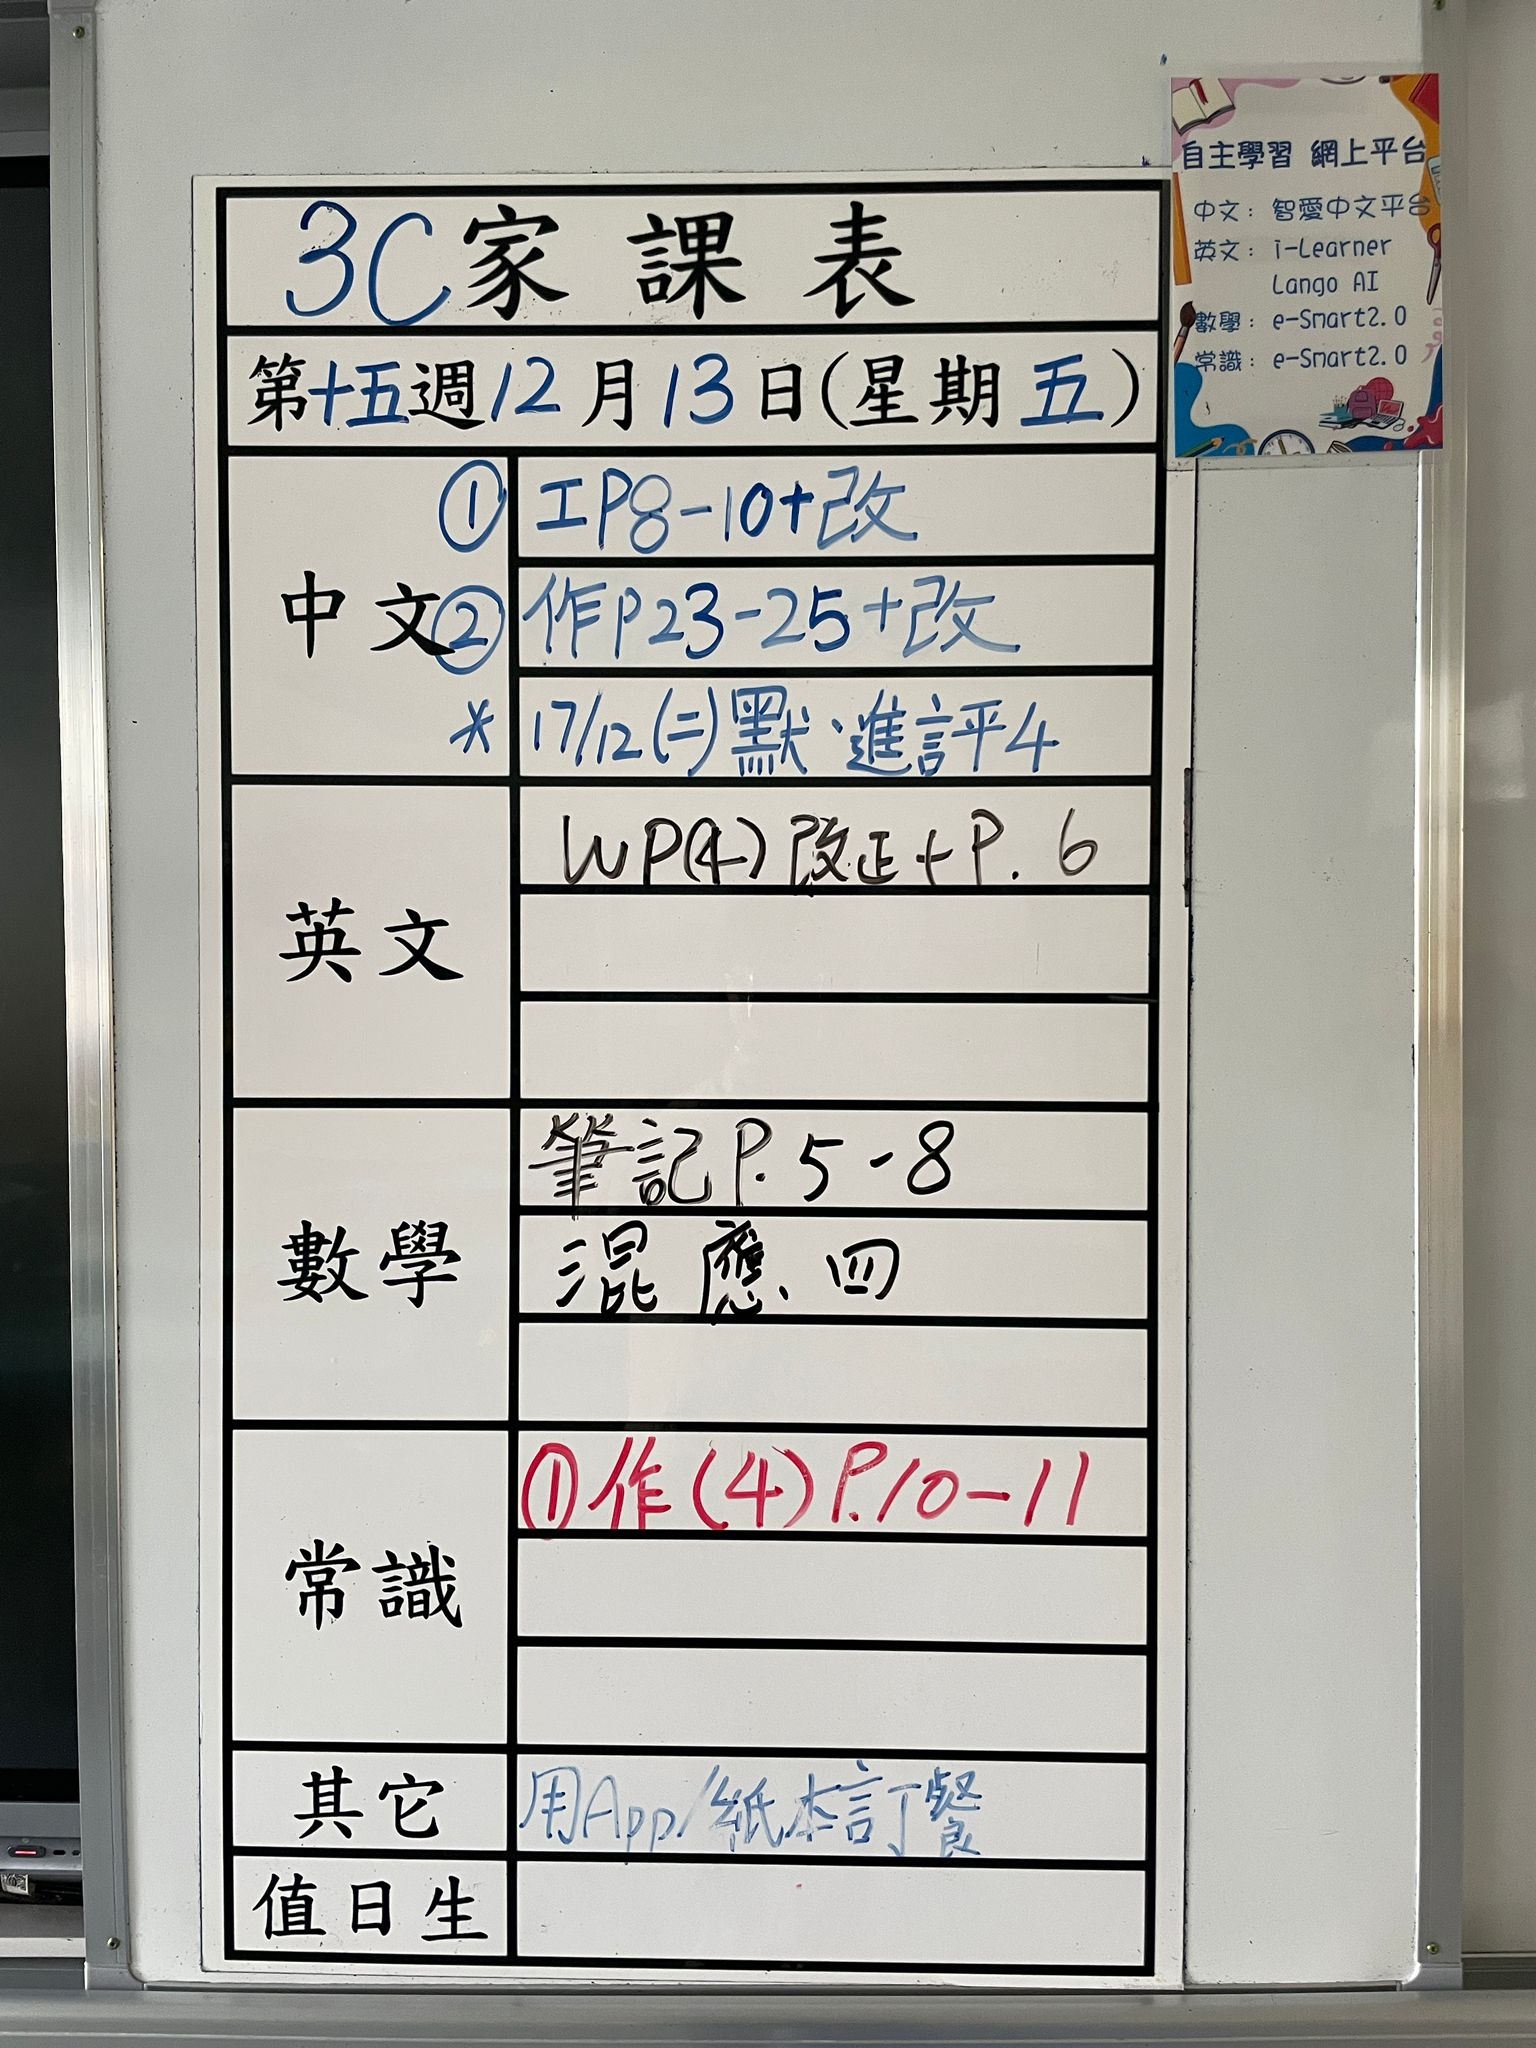 3C家課表
第十五週12月13日(星期五)
中文
① 工P8-10+改
② 作P23-25+改
* 17/12(二)默、進評4
英文
WP(4)改正+P.6
數學
筆記P.5-8
混應.四
常識
①作(4)P.10-11
其它
用App/紙本訂餐
值日生
自主學習 網上平台
中文：智愛中文平台
英文：i-Learner
Lango AI
數學：e-Smart2.0
常識：e-Smart2.0